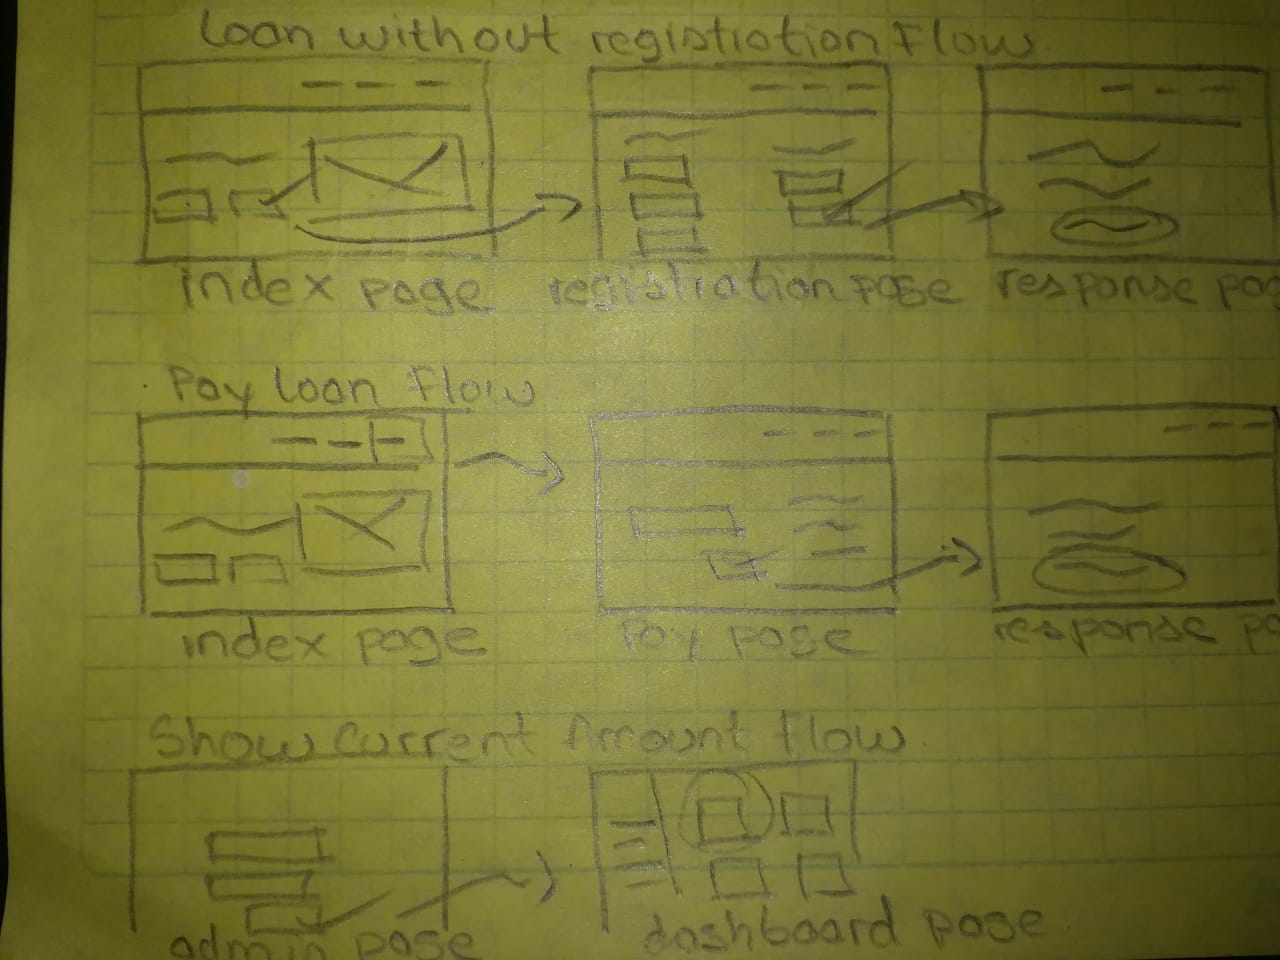 Loan without registration Flow
index page registration page response pag
Pay loan Flow
index page Pay page response pa
Show Current Amount Flow
admin page dashboard page